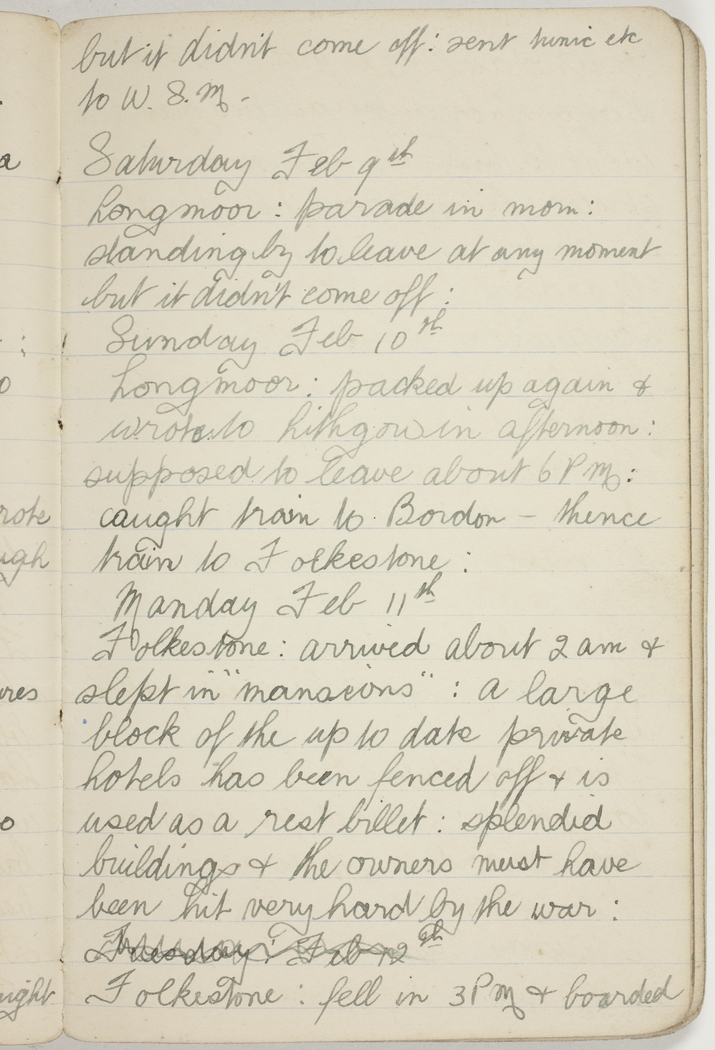 but it didn't come off: sent tunic etc
to W. S. M. -
Saturday Feb 9th
Longmoor: parade in morn:
standing by to leave at any moment
but it didn't come off:
Sunday Feb 10th
Longmoor: packed up again &
wrote to Lithgow in afternoon:
supposed to leave about 6 P m:
caught train to Bordon - thence
train to Folkestone:
Manday Feb 11th
Folkestone: arrived about 2 am &
slept in "mansions": a large
block of the up to date private
hotels has been fenced off & is
used as a rest billet: splendid
buildings & the owners must have
been hit very hard by the war:
Tuesday: Feb 12th
Folkestone: fell in 3 P m & boarded
a
:
o
rote
ugh
ures
o
ught